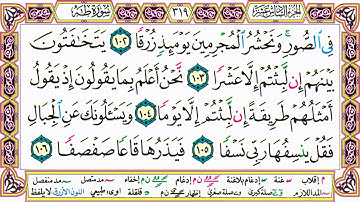 الجزء السادس عشر ٣١٩ سورة طه
فِى الصُّورِ وَنَحْشُرُ الْمُجْرِمِينَ يَوْمَئِذٍ زُرْقًا ١٠٢ يَتَخَافَتُونَ
بَيْنَهُمْ إِن لَّبِثْتُمْ إِلَّا عَشْرًا ١٠٣ نَّحْنُ أَعْلَمُ بِمَا يَقُولُونَ إِذْ يَقُولُ
أَمْثَلُهُمْ طَرِيقَةً إِن لَّبِثْتُمْ إِلَّا يَوْمًا ١٠٤ وَيَسْـَٔلُونَكَ عَنِ الْجِبَالِ
فَقُلْ يَنسِفُهَا رَبِّى نَسْفًا ١٠٥ فَيَذَرُهَا قَاعًا صَفْصَفًا ١٠٦